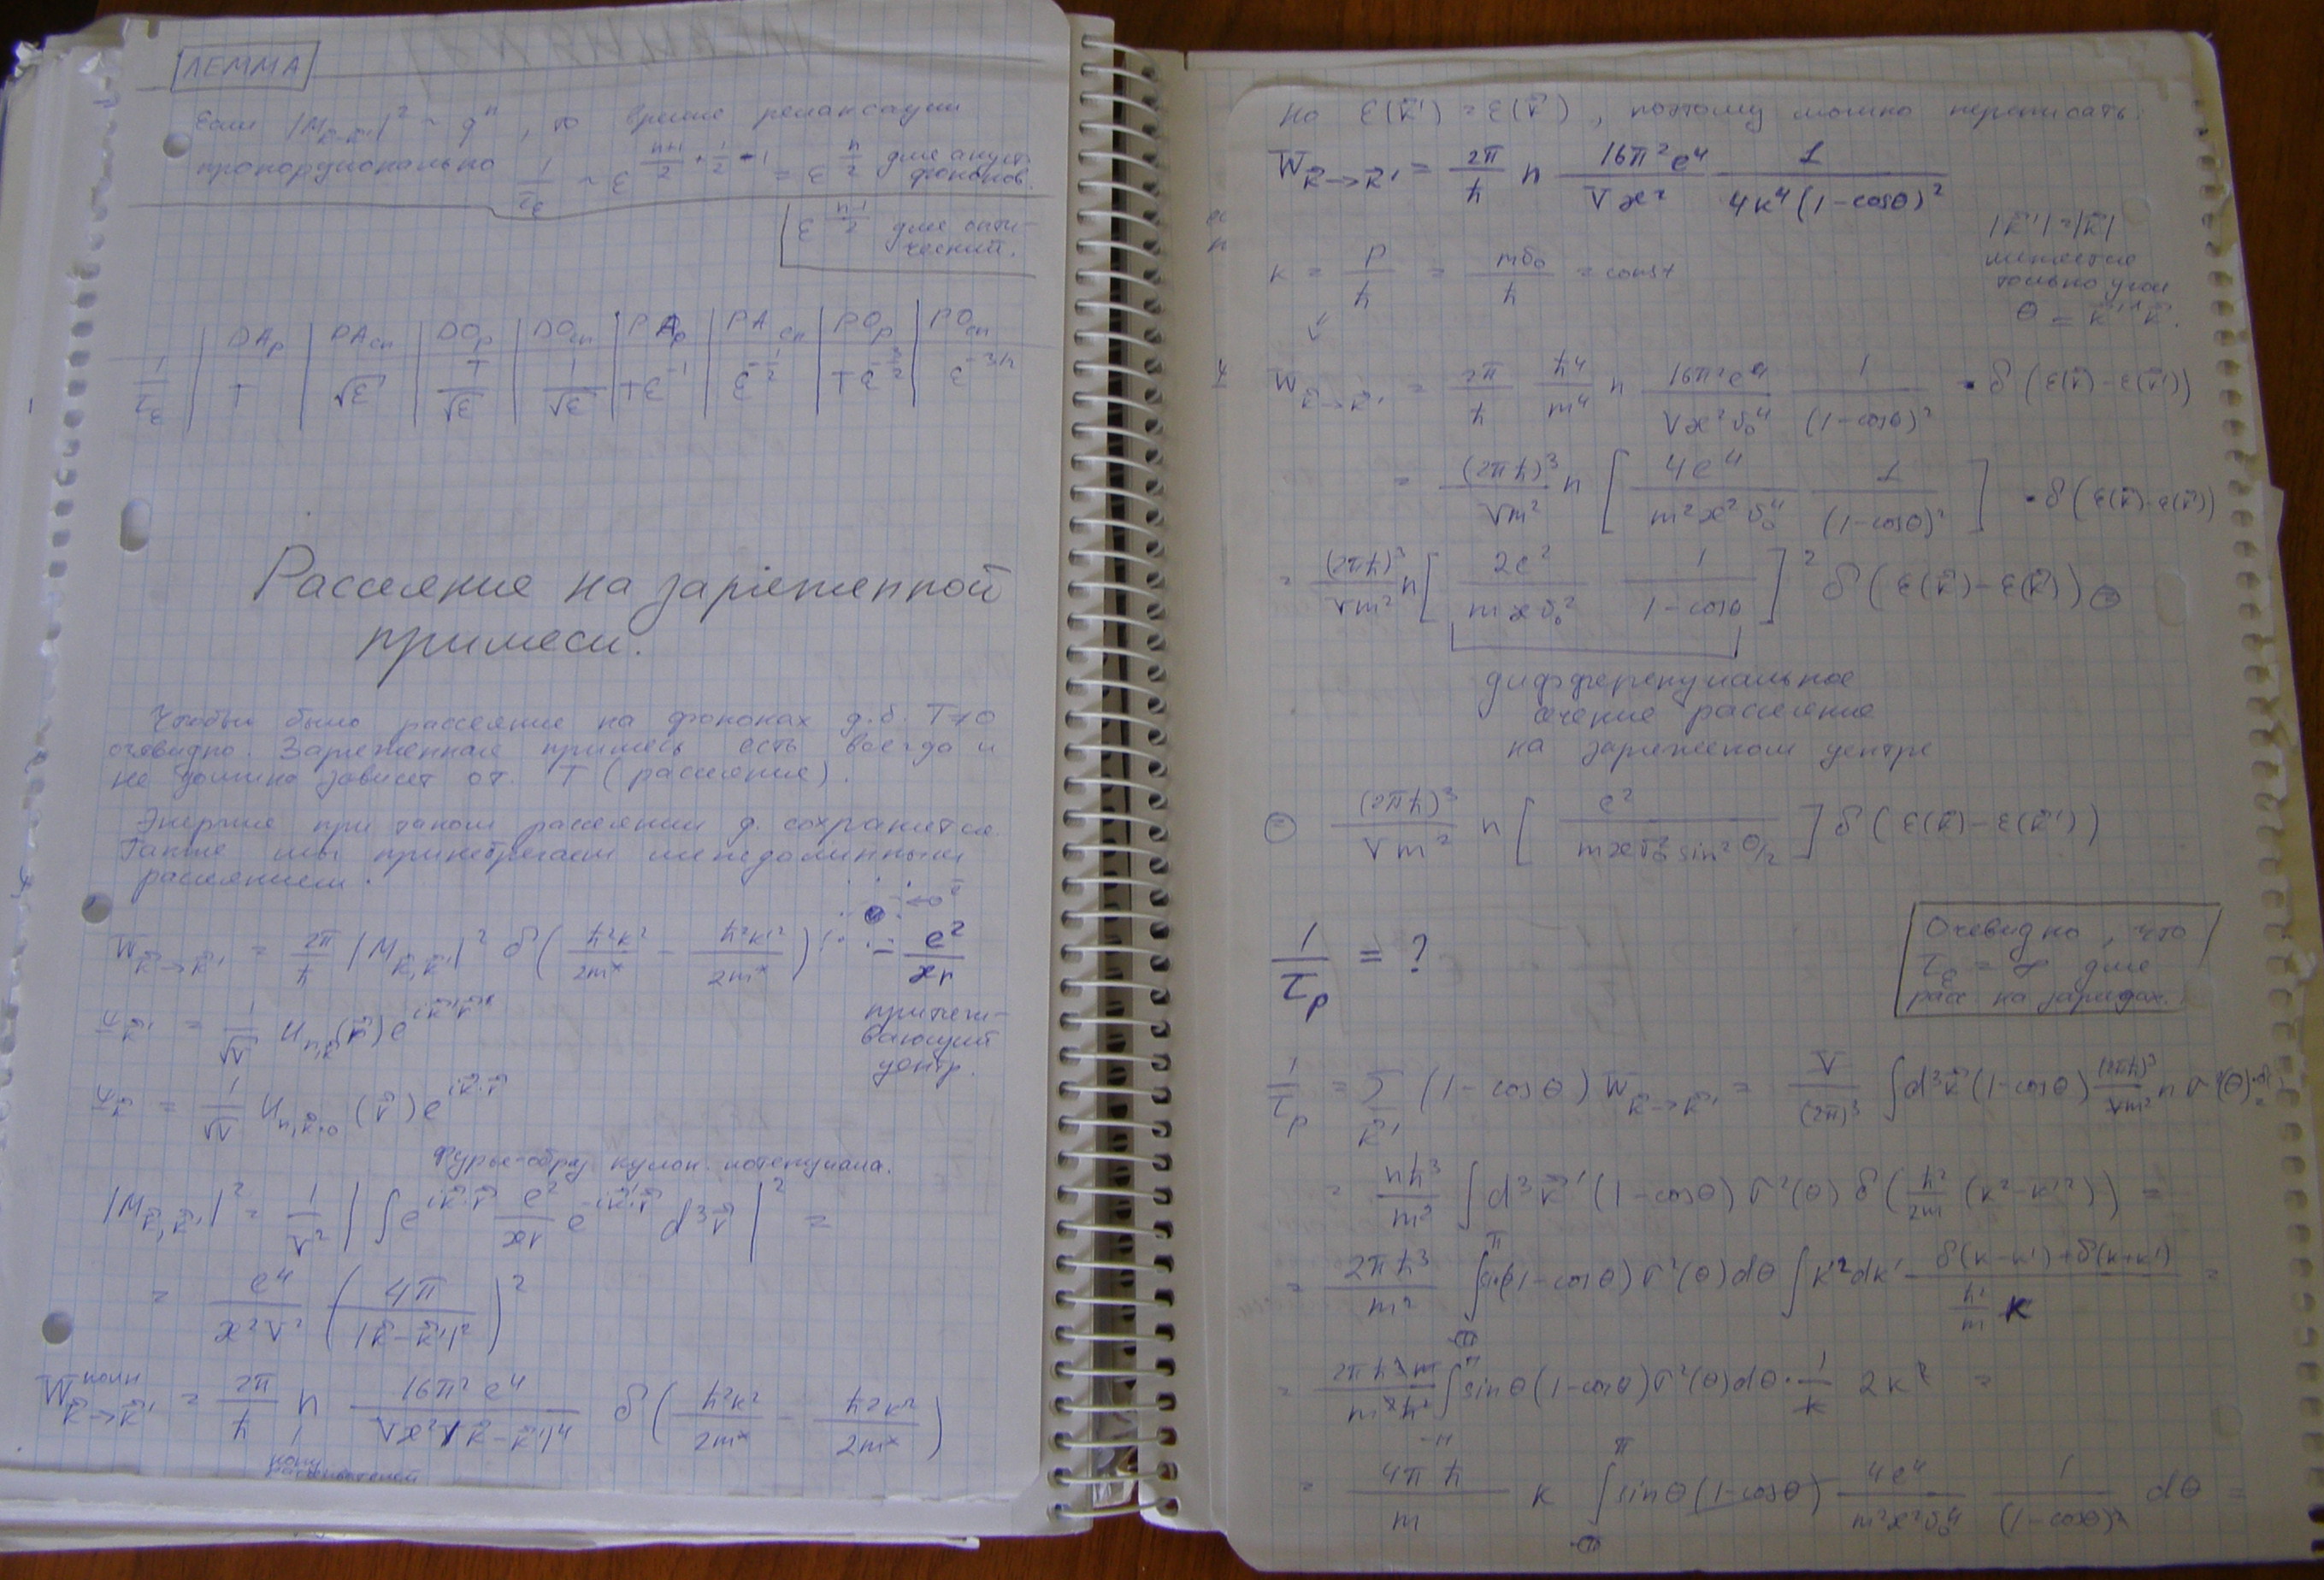 ЛЕММА
Если |M_{k⃗-k⃗'}|² ~ q^n, то время релаксации
пропорционально 1/τ_ε ~ ε^{(n+1)/2 + 1/2 - 1} = ε^{n/2} для акуст. фононов.
ε^{(n-1)/2} для опти-
ческий.
DA_p | DA_сп | DO_p | DO_сп | PA_p | PA_сп | PO_p | PO_сп
1/τ_ε | T | √ε | T/√ε | 1/√ε | Tε^{-1} | ε^{-1/2} | Tε^{-3/2} | ε^{-3/2}
Рассеяние на заряженной
примеси.
Чтобы было рассеяние на фононах д.б. T≠0
очевидно. Заряженная примесь есть всегда и
не должно зависет от T (рассеяние).
Энергия при таком рассеянии д. сохранится
Также мы пренебрегаем междолинным
рассеянием.
W_{k⃗→k⃗'} = 2π/ħ |M_{k⃗,k⃗'}|² δ(ħ²k²/2m* - ħ²k'²/2m*)
- e²/ær
притяги-
вающий
центр.
Ψ_{k⃗'} = 1/√V U_{n,k⃗}(r⃗) e^{ik⃗'r⃗}
Ψ_{k⃗} = 1/√V U_{n,k⃗≈0}(r⃗) e^{ik⃗·r⃗}
Фурье-образ кулон. потенциала.
|M_{k⃗,k⃗'}|² = 1/V² |∫ e^{ik⃗·r⃗} e²/ær e^{-ik⃗'·r⃗} d³r⃗|² =
= e⁴/æ²V² (4π/|k⃗-k⃗'|²)²
W^{полн}_{k⃗→k⃗'} = 2π/ħ n 16π²e⁴/(Væ²|k⃗-k⃗'|⁴) δ(ħ²k²/2m* - ħ²k'²/2m*)
рассеивателей
Но ε(k⃗') = ε(k⃗), поэтому можно переписать:
W_{k⃗→k⃗'} = 2π/ħ n 16π²e⁴/Væ² 1/(4k⁴(1-cosθ)²)
|k⃗'| = |k⃗|
меняется
только угол
θ = k⃗'^k⃗.
k = p/ħ = mv₀/ħ = const
W_{k⃗→k⃗'} = 2π/ħ ħ⁴/m⁴ n 16π²e⁴/(Væ²v₀⁴) 1/(1-cosθ)² · δ(ε(k⃗) - ε(k⃗'))
= (2πħ)³/Vm² n [4e⁴/(m²æ²v₀⁴) 1/(1-cosθ)²] · δ(ε(k⃗) - ε(k⃗'))
= (2πħ)³/Vm² n [2e²/(mæv₀²) 1/(1-cosθ)]² δ(ε(k⃗) - ε(k⃗')) ⊜
дифференциальное
сечение рассеяния
на заряженом центре
⊜ (2πħ)³/Vm² n [e²/(mæv₀² sin²θ/2)] δ(ε(k⃗) - ε(k⃗'))
1/τ_p = ?
Очевидно, что
τ_ε = ∞ для
расс. на зарядах.
1/τ_p = Σ_{k⃗'} (1-cosθ) W_{k⃗→k⃗'} = V/(2π)³ ∫d³k⃗ (1-cosθ) (2πħ)³/Vm² n σ²(θ)·δ =
= nħ³/m² ∫d³k⃗' (1-cosθ) σ²(θ) δ(ħ²/2m (k²-k'²)) =
= 2πħ³/m² ∫^π sinθ(1-cosθ) σ²(θ)dθ ∫k'²dk' (δ(k-k') + δ(k+k'))/(ħ²/m k) =
= 2πħ³m/m²ħ² ∫_{-π}^{π} sinθ(1-cosθ) σ²(θ)dθ · 1/k 2k² =
= 4πħ/m k ∫^π sinθ(1-cosθ) 4e⁴/(m²æ²v₀⁴) 1/(1-cosθ)² dθ =